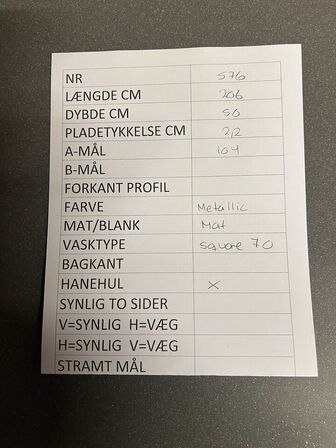 NR 576
LÆNGDE CM 206
DYBDE CM 50
PLADETYKKELSE CM 2,2
A-MÅL 104
B-MÅL
FORKANT PROFIL
FARVE Metallic
MAT/BLANK Mat
VASKTYPE square 70
BAGKANT
HANEHUL X
SYNLIG TO SIDER
V=SYNLIG H=VÆG
H=SYNLIG V=VÆG
STRAMT MÅL